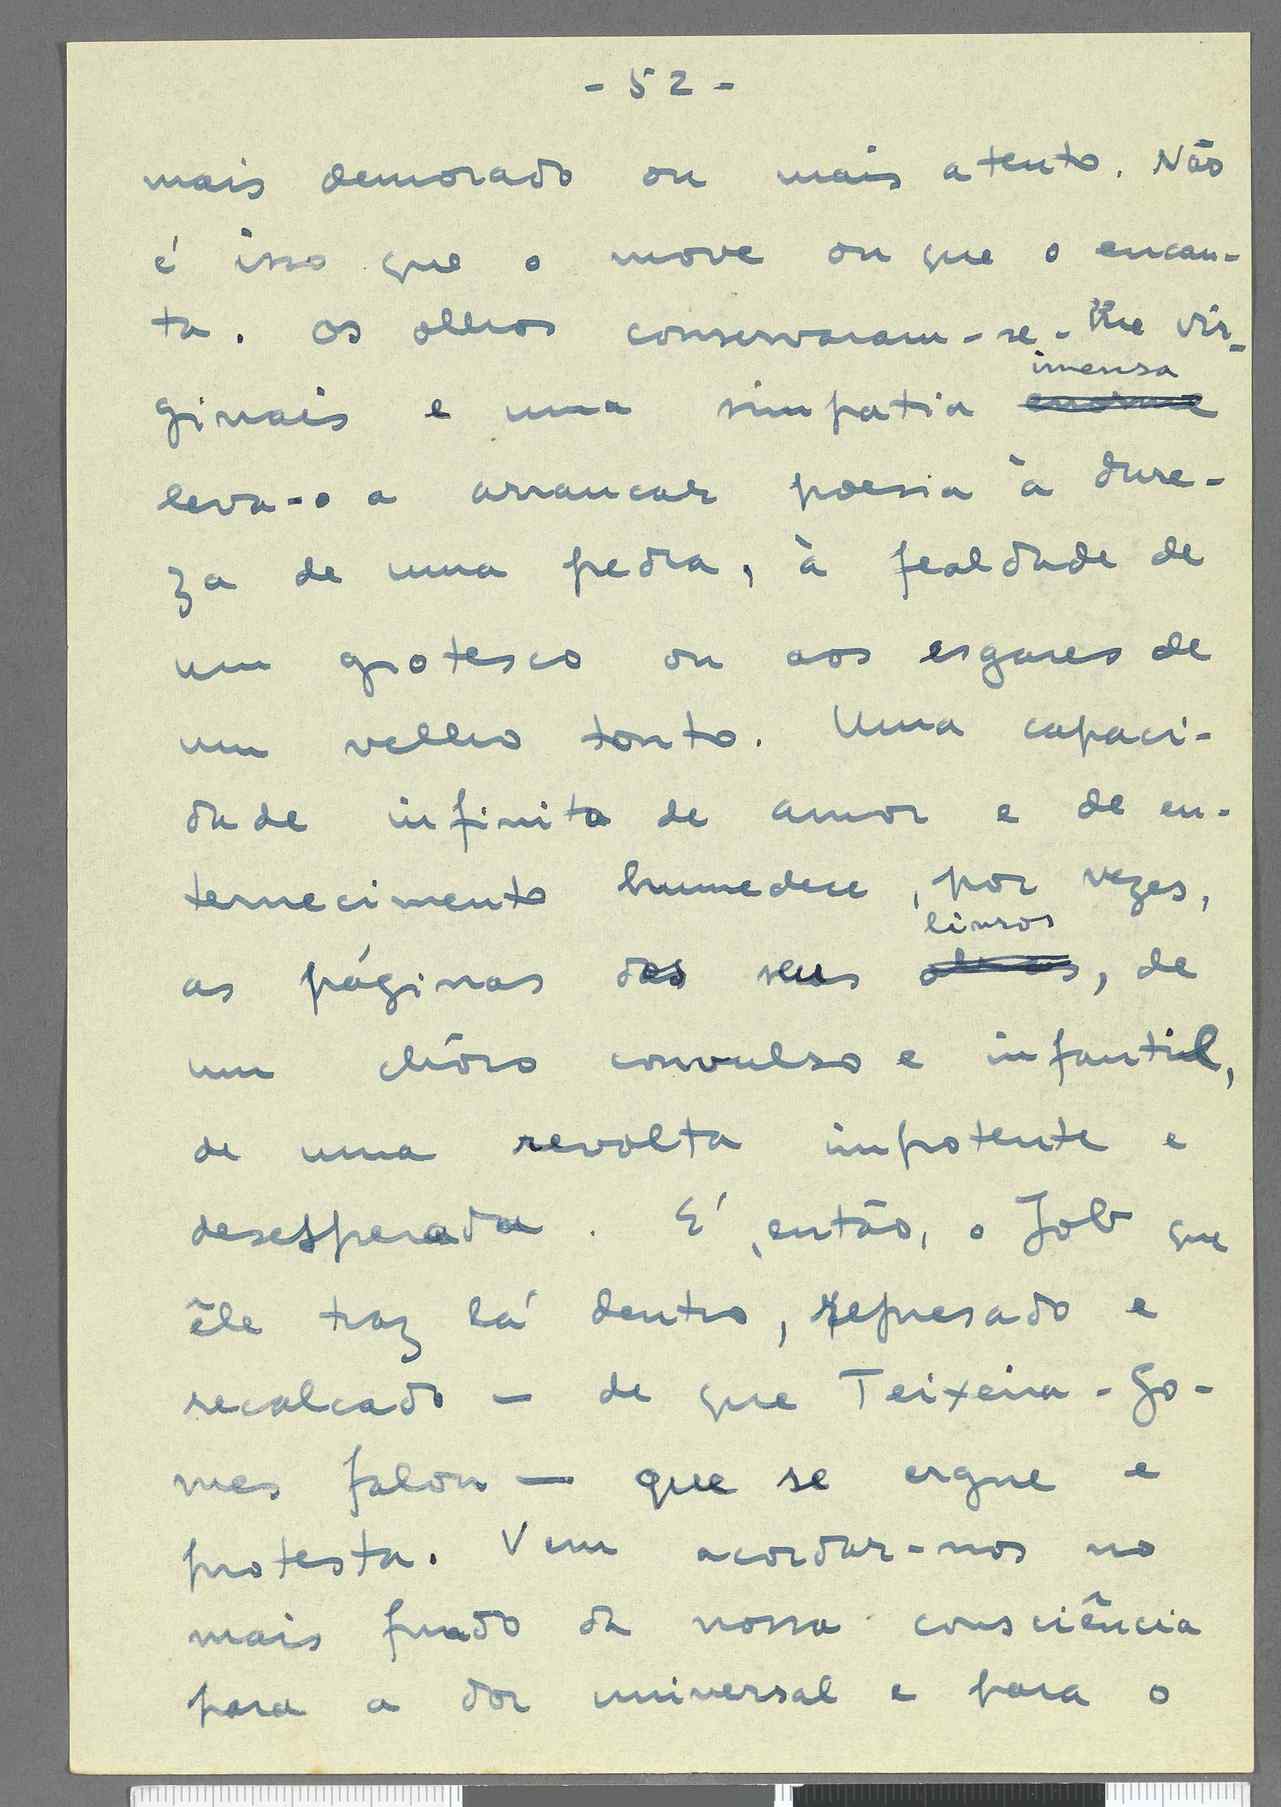 - 52 -
mais demorado ou mais atento. Não
é isso que o move ou que o encan-
ta. Os olhos conservaram-se-lhe vir-
imensa
ginais e uma simpatia enorme
leva-o a arrancar poesia à dure-
za de uma pedra, à fealdade de
um grotesco ou aos esgares de
um velho tonto. Uma capaci-
dade infinita de amor e de en-
ternecimento humedece, por vezes,
livros
as páginas dos seus obras, de
um chôro convulso e infantil,
de uma revolta impotente e
desesperada. É, então, o Job que
êle traz lá dentro, represado e
recalcado — de que Teixeira-Go-
mes falou — que se ergue e
protesta. Vem acordar-nos no
mais fundo da nossa consciência
para a dor universal e para o